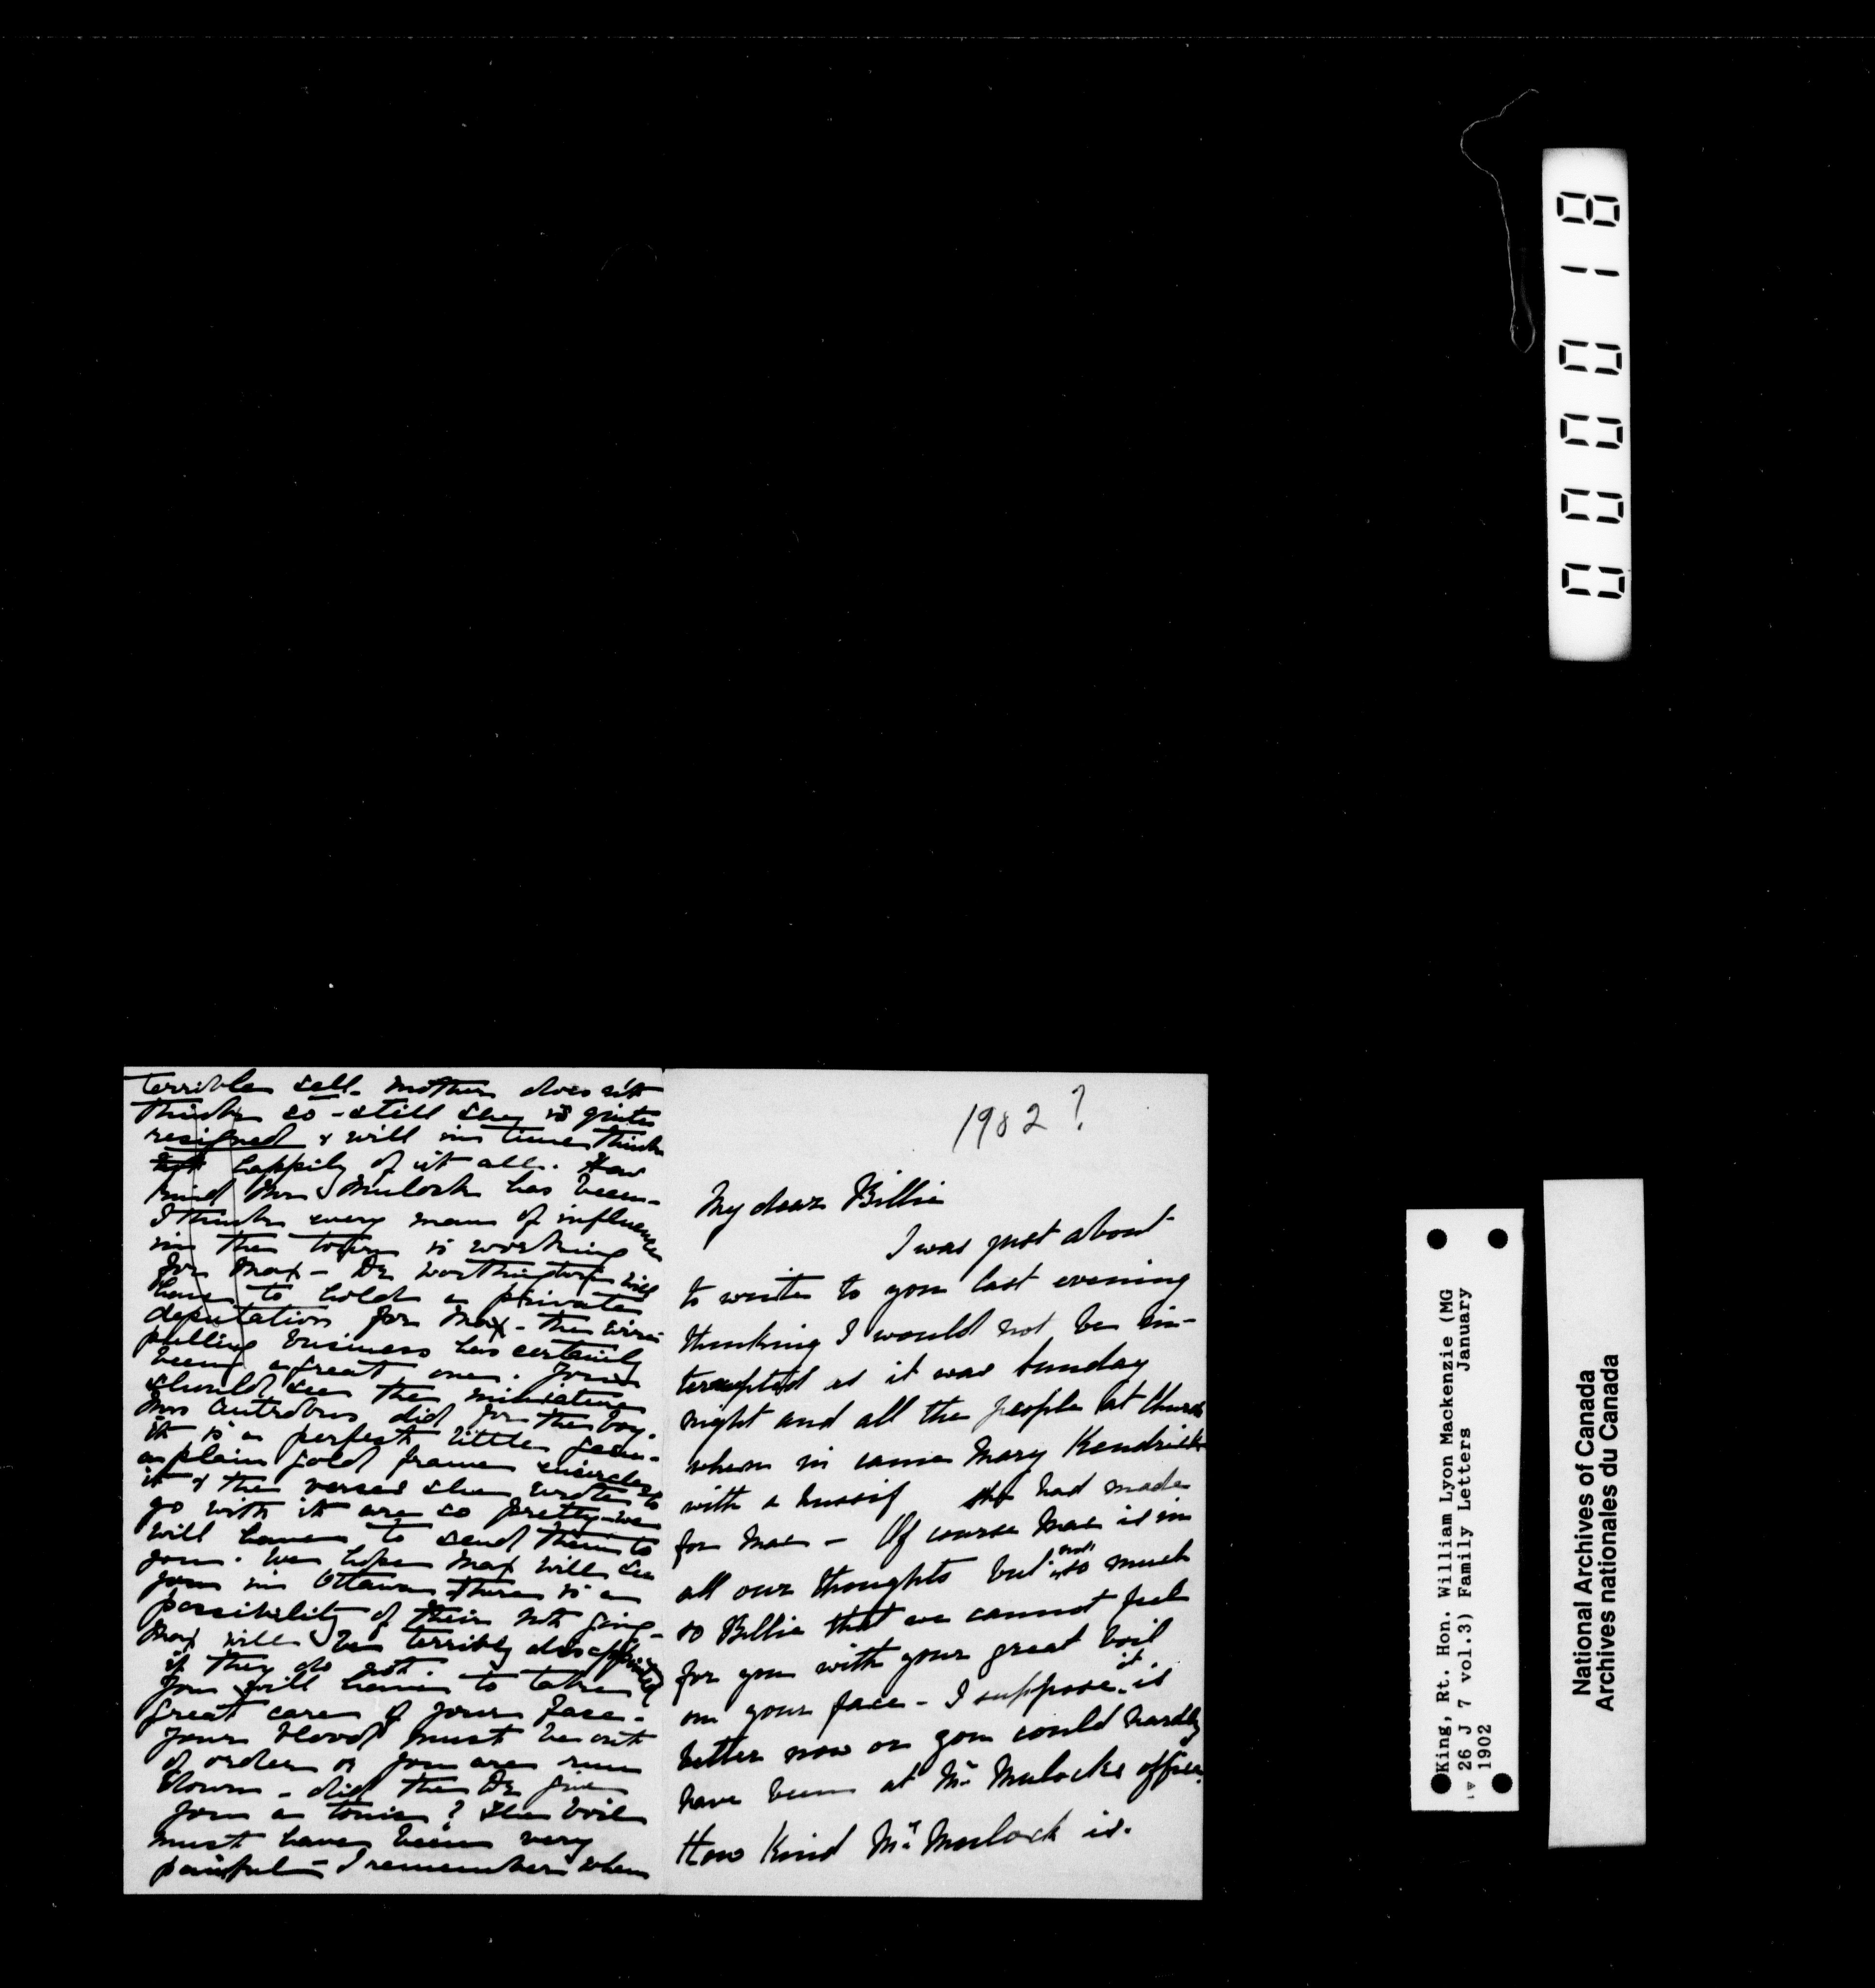 terrible sell. Mother does n't
think so - still she is quite
resigned & will in time think
happily of it all. How
kind Mr Mulock has been -
I think every man of influence
in the town is working
for Max - Dr Worthington will
have to hold a private
deputation for Max - the wire
pulling business has certainly
been a great one. You
should see the miniature
Mrs Antrobus did for the boy.
it is a perfect little gem -
a plain gold frame encircles
it & the verses she wrote to
go with it are so pretty - we
will have to send them to
you. We hope Max will see
you in Ottawa there is a
possibility of their not going -
Max will be terribly disappointed
if they do not.
You will have to take
great care of your face -
your blood must be out
of order or you are run
down - did the Dr give
you a tonic? The boil
must have been very
painful - I remember when
1902?
My dear Billie
I was just about
to write to you last evening
thinking I would not be in-
terrupted as it was Sunday
night and all the people at Church
when in came Mary Kendrick
with a hussif she had made
for Max - Of course Max is in
all our thoughts but not so much
so Billie that we cannot feel
for you with your great boil
on your face - I suppose it is
better now or you could hardly
have been at Mr Mulocks office.
How Kind Mr Mulock is.
0000018
King, Rt. Hon. William Lyon Mackenzie (MG
26 J 7 vol.3) Family Letters January
1902
National Archives of Canada
Archives nationales du Canada